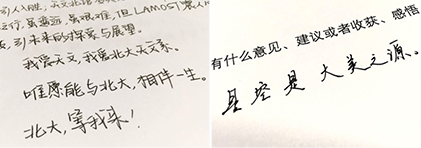 引人入胜,
运行,虽遥远,虽艰难,但LAMOST
引未来的探索与展望。
我爱天文,我爱北大天文系。
唯愿能与北大,相伴一生。
北大,等我来!
有什么意见、建议或者收获、感悟
星空是大美之源。